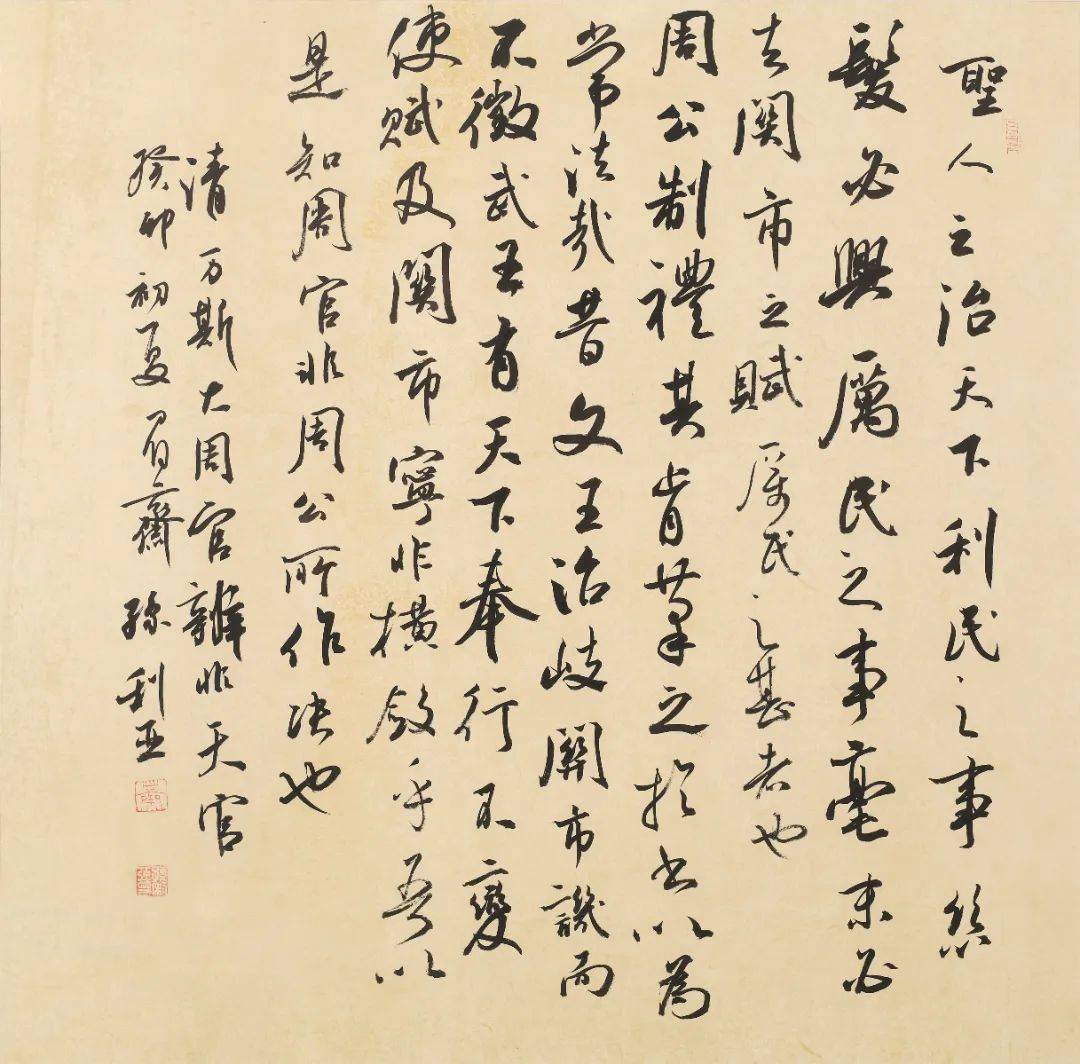 聖人之治天下利民之事絲
髮必興厲民之事毫末必
去關市之賦厲民之甚者也
周公制禮其肯筆之於書以為
常法哉昔文王治岐關市譏而
不徵武王有天下奉行不變
使賦及關市寧非橫斂乎吾以
是知周官非周公所作決也
清万斯大周官辨非天官
癸卯初夏眉齋孫利亚